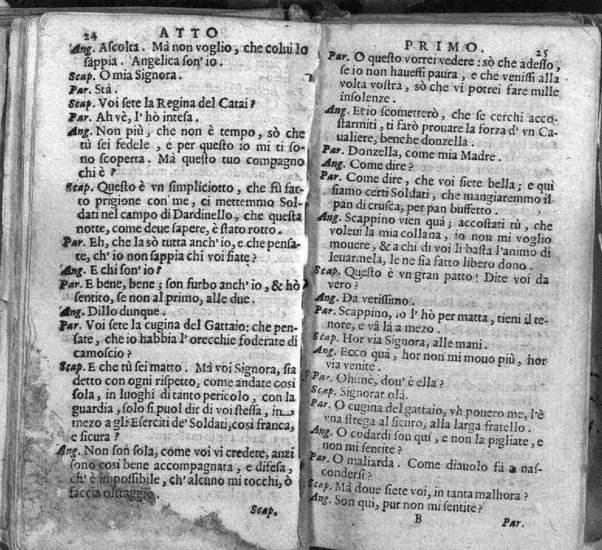 24 ATTO
Ang. Ascolta. Mà non voglio, che colui lo
sappia. Angelica son' io.
Scap. O mia Signora.
Par. Stà.
Scap. Voi sete la Regina del Catai?
Par. Ah vè, l' hò intesa.
Ang. Non più, che non è tempo, sò che
tù sei fedele, e per questo io mi ti so-
no scoperta. Mà questo tuo compagno
chi è?
Scap. Questo è vn simpliciotto, che fù fat-
to prigione con me, ci mettemmo Sol-
dati nel campo di Dardinello, che questa
notte, come deue sapere, è stato rotto.
Par. Eh, che la sò tutta anch' io, e che pensa-
te, ch' io non sappia chi voi siate?
Ang. E chi son' io?
Par. E bene, bene; son furbo anch' io, & hò
sentito, se non al primo, alle due.
Ang. Dillo dunque.
Par. Voi sete la cugina del Gattaio: che pen-
sate, che io habbia l' orecchie foderate di
camoscio?
Scap. E che tù sei matto. Mà voi Signora, sia
detto con ogni rispetto, come andate così
sola, in luoghi di tanto pericolo, con la
guardia, solo si può dir di voi stessa, in
mezo a gli Eserciti de' Soldati, così franca,
e sicura?
Ang. Non son sola, come voi vi credete, anzi
sono così bene accompagnata, e difesa,
ch' è impossibile, ch' alcuno mi tocchi, ò
faccia oltraggio.
Scap.
PRIMO. 25
Par. O questo vorrei vedere: sò che adesso,
se io non hauessi paura, e che venissi alla
volta vostra, sò che vi potrei fare mille
insolenze.
Ang. Et io scometterò, che se cerchi acco-
starmiti, ti farò prouare la forza d' vn Ca-
ualiere, benche donzella.
Par. Donzella, come mia Madre.
Ang. Come dire?
Par. Come dire, che voi siete bella; e qui
siamo certi Soldati, che mangiaremmo il
pan di crusca, per pan buffetto.
Ang. Scappino vien quà; accostati tù, che
voleui la mia collana, io non mi voglio
mouere, & a chi di voi li basta l' animo di
leuarmela, le ne sia fatto libero dono.
Scap. Questo è vn gran patto! Dite voi da
vero?
Ang. Da verissimo.
Par. Scappino, io l' hò per matta, tieni il te-
nore, e và là a mezo.
Scap. Hor via Signora, alle mani.
Ang. Ecco quà, hor non mi mouo più, hor
via venite.
Par. Ohimè, dou' è ella?
Scap. Signora: olà.
Par. O cugina del gattaio, vh pouero me, l' è
vna strega al sicuro, alla larga fratello.
Ang. O codardi son quì, e non la pigliate, e
non mi sentite?
Par. O maliarda. Come diauolo fà a nas-
condersi?
Scap. Mà doue siete voi, in tanta malhora?
Ang. Son quì, pur non mi sentite?
B Par.